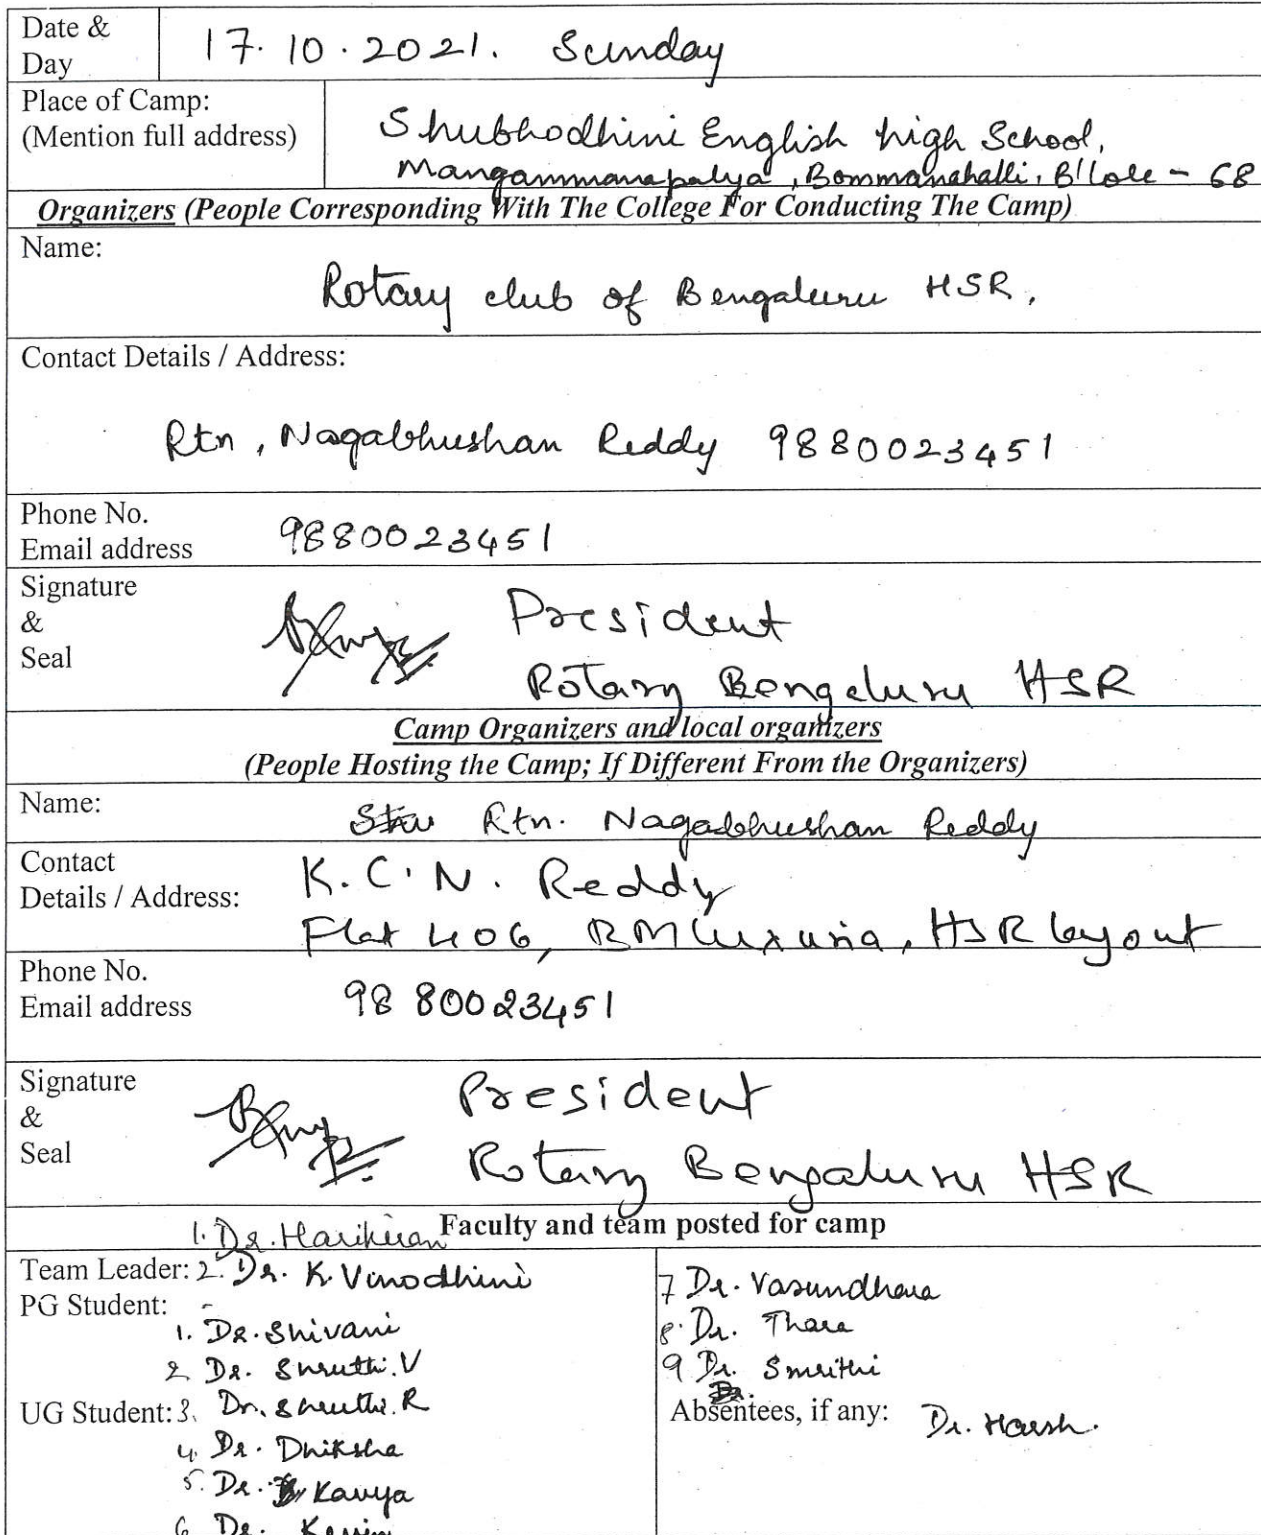 Date & Day 17.10.2021. Sunday
Place of Camp:
(Mention full address)
Shubhodhini English high School,
Mangammanapalya, Bommanahalli, B'lore - 68
Organizers (People Corresponding With The College For Conducting The Camp)
Name:
Rotary club of Bengaluru HSR,
Contact Details / Address:
Rtn, Nagabhushan Reddy 9880023451
Phone No.
Email address
9880023451
Signature
&
Seal
President
Rotary Bengaluru HSR
Camp Organizers and local organizers
(People Hosting the Camp; If Different From the Organizers)
Name:
Rtn. Nagabhushan Reddy
Contact
Details / Address:
K.C.N. Reddy
Flat 406, BM Luxuria, HSR layout
Phone No.
Email address
98 80023451
Signature
&
Seal
President
Rotary Bengaluru HSR
Faculty and team posted for camp
1. Dr. Harikiran
Team Leader: 2. Dr. K. Vinodhini
PG Student:
1. Dr. Shivani
2 Dr. Shruthi.V
UG Student: 3. Dr. Shruthi.R
4. Dr. Dhiksha
5. Dr. Kavya
6 Dr.
7 Dr. Vasundhara
8. Dr. Thara
9 Dr. Smrithi
Absentees, if any: Dr. Harsh.